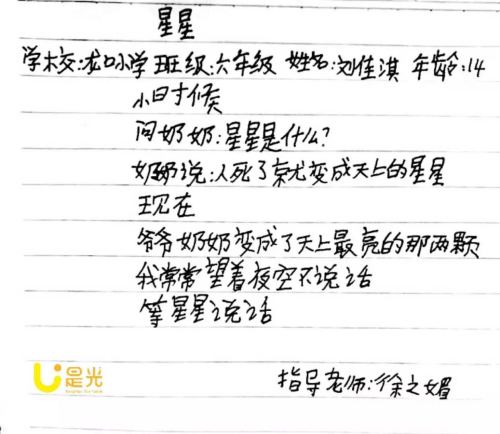 星星
学校:龙口小学 班级:六年级 姓名:刘佳淇 年龄:14
小时候
问奶奶:星星是什么?
奶奶说:人死了就变成天上的星星
现在
爷爷奶奶变成了天上最亮的那两颗
我常常望着夜空不说话
等星星说话
是光
指导老师:徐之媚